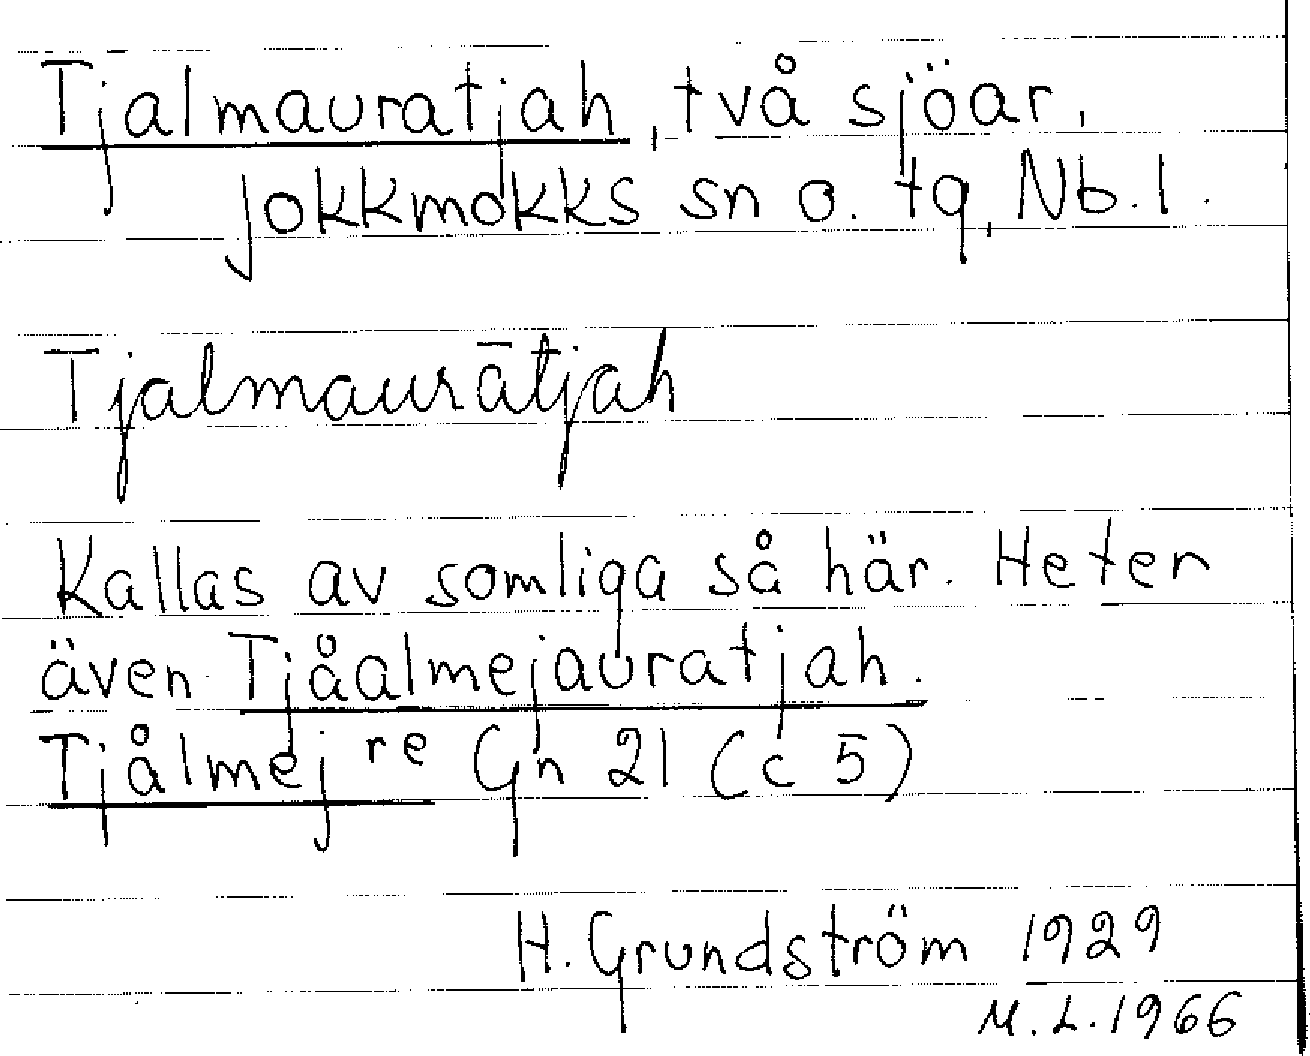 Tjalmauratjah, två sjöar,
Jokkmokks sn o. tg, Nb. l.
Tjalmaurātjah
Kallas av somliga så här. Heter
även Tjåalmejauratjah.
Tjålmej re Gn 21 (c 5)
H. Grundström 1929
M. L. 1966